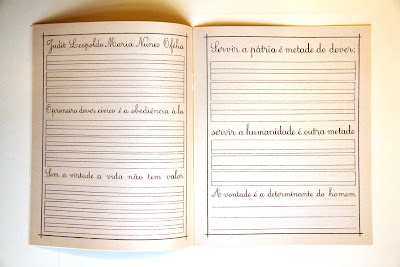 Judit Leopoldo Maria Nunes Ofélia
O primeiro dever cívico é a obediência à la
Sem a virtude a vida não tem valor
Servir a pátria é metade do dever;
servir a humanidade é outra metade
A vontade é a determinante do homem